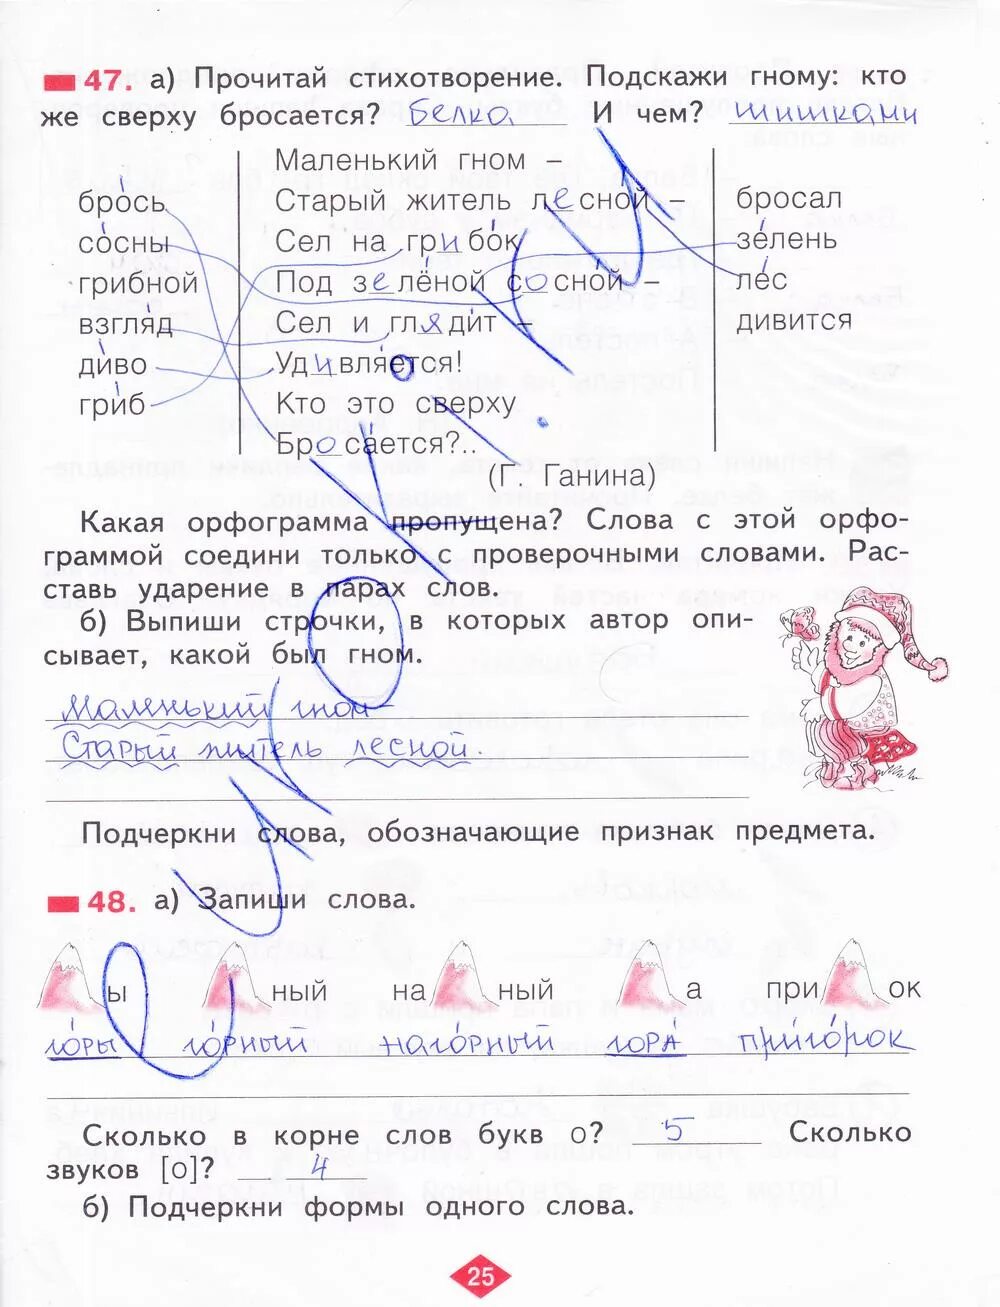 47. а) Прочитай стихотворение. Подскажи гному: кто
же сверху бросается? Белка И чем? шишками
Маленький гном –
брось Старый житель лесной – бросал
сосны Сел на грибок зелень
грибной Под зелёной сосной – лес
взгляд Сел и глядит – дивится
диво Удивляется!
гриб Кто это сверху
Бросается?..
(Г. Ганина)
Какая орфограмма пропущена? Слова с этой орфо-
граммой соедини только с проверочными словами. Рас-
ставь ударение в парах слов.
б) Выпиши строчки, в которых автор опи-
сывает, какой был гном.
Маленький гном
Старый житель лесной.
Подчеркни слова, обозначающие признак предмета.
48. а) Запиши слова.
ы ный на ный а при ок
горы горный нагорный гора пригорок
Сколько в корне слов букв о? 5 Сколько
звуков [о]? 4
б) Подчеркни формы одного слова.
25